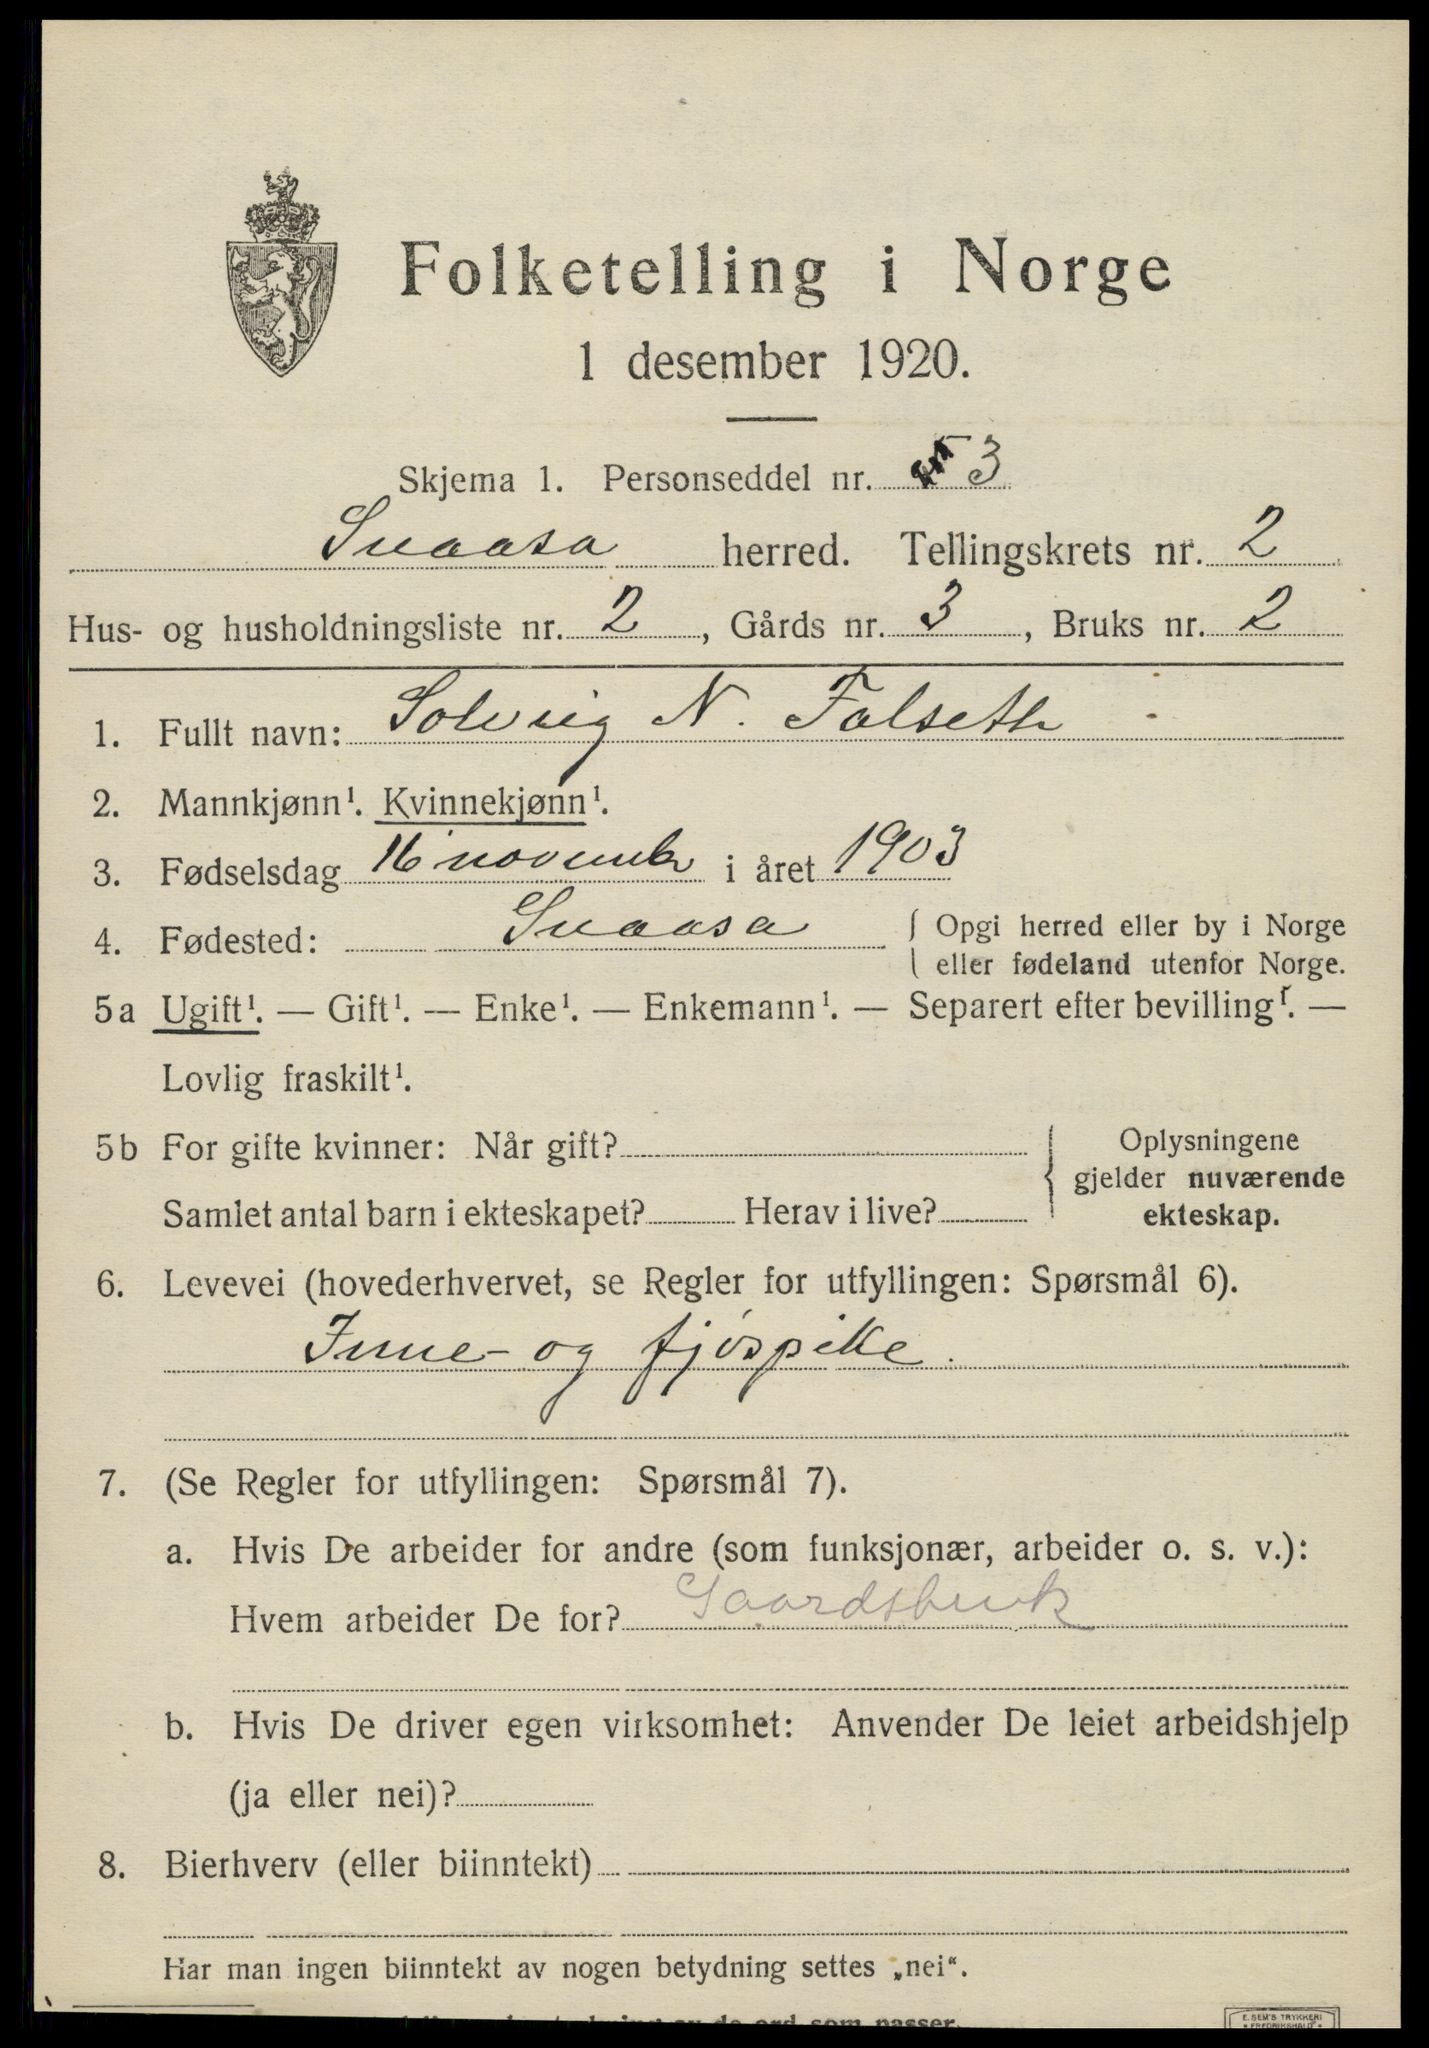 Folketelling i Norge
1 desember 1920.
Skjema 1. Personseddel nr. 3
Snaasa herred. Tellingskrets nr. 2
Hus- og husholdningsliste nr. 2, Gårds nr. 3, Bruks nr. 2
1. Fullt navn: Solveig N. Falseth
2. Mannkjønn¹. Kvinnekjønn¹.
3. Fødselsdag 16 november i året 1903
4. Fødested: Snaasa { Opgi herred eller by i Norge
eller fødeland utenfor Norge.
5a Ugift¹. — Gift¹. — Enke¹. — Enkemann¹. — Separert efter bevilling¹. —
Lovlig fraskilt¹.
5b For gifte kvinner: Når gift? { Oplysningene
gjelder nuværende
Samlet antal barn i ekteskapet? Herav i live? ekteskap.
6. Levevei (hovederhvervet, se Regler for utfyllingen: Spørsmål 6).
Inne- og fjøspike.
7. (Se Regler for utfyllingen: Spørsmål 7).
a. Hvis De arbeider for andre (som funksjonær, arbeider o. s. v.):
Hvem arbeider De for? Gaardsbruk
b. Hvis De driver egen virksomhet: Anvender De leiet arbeidshjelp
(ja eller nei)?
8. Bierhverv (eller biinntekt)
Har man ingen biinntekt av nogen betydning settes „nei“.
av de ord som passer.
E. SEM'S TRYKKERI
FREDRIKSHALD